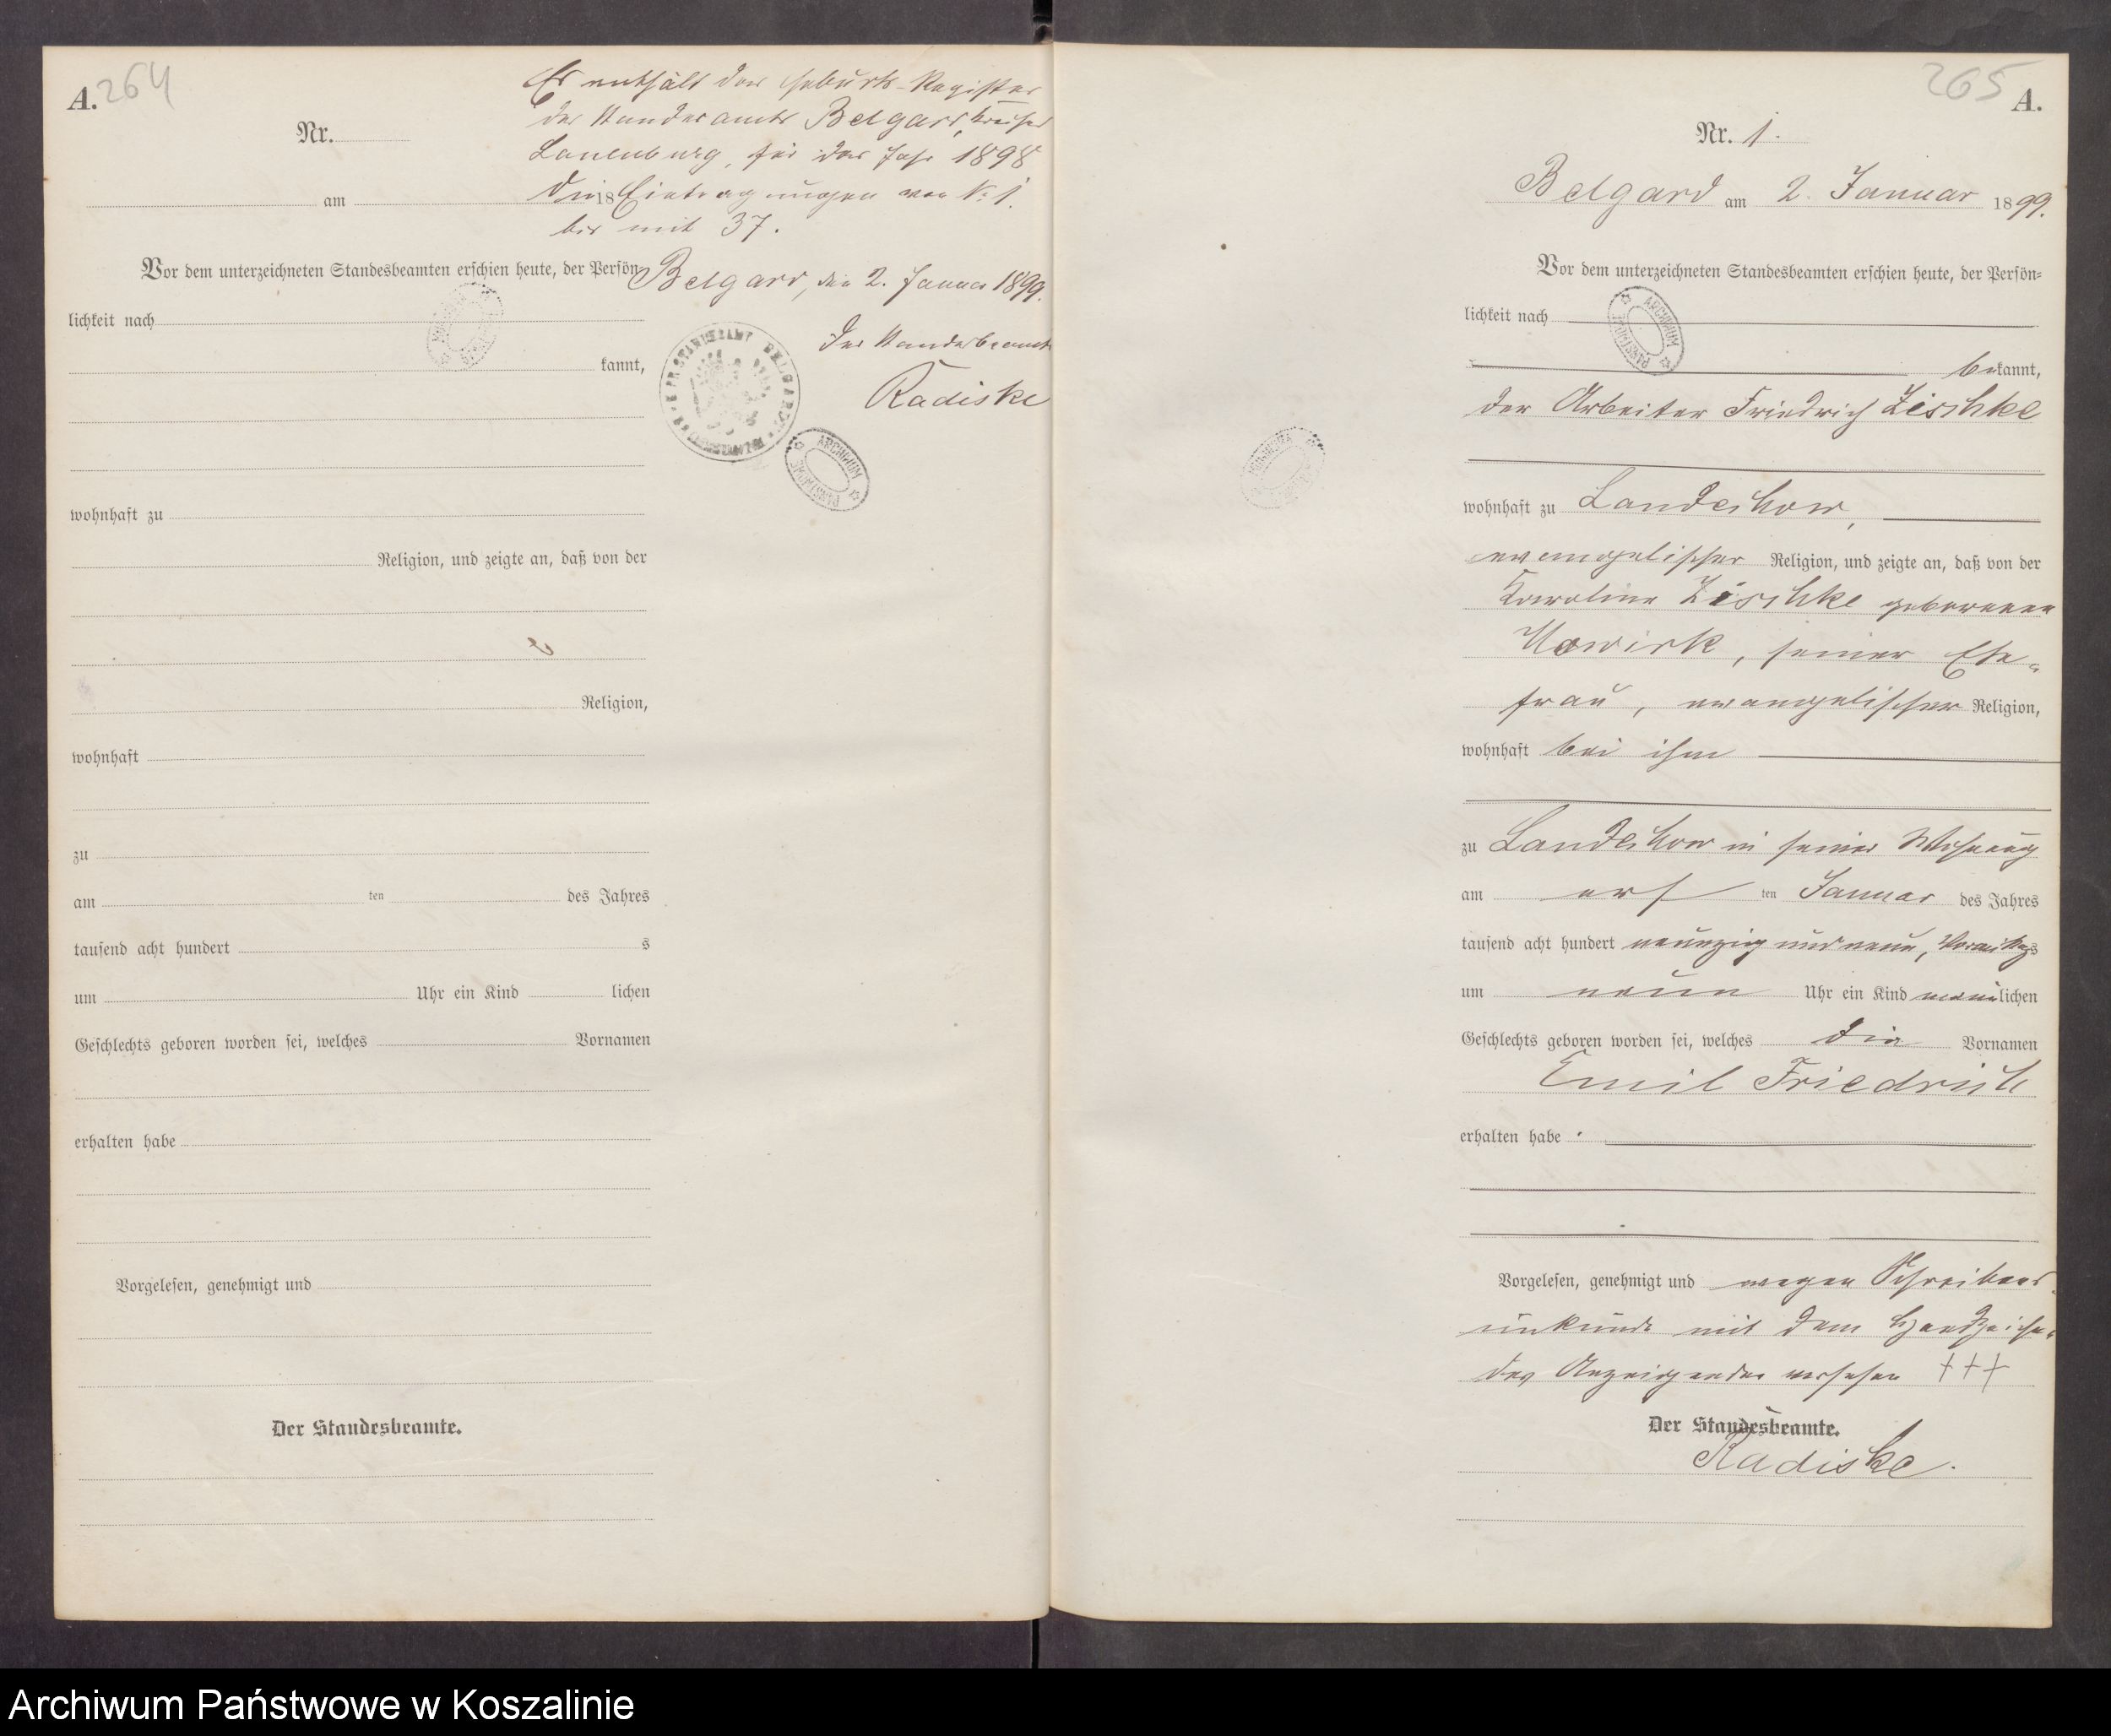 A. 264
Es enthält das Geburts-Register
des Standesamts Belgard, Kreises
Lauenburg, für das Jahr 1898
die Eintragungen von No 1.
bis mit 37.
Belgard, den 2. Januar 1899.
Der Standesbeamte
Radiske
Nr.
am 18
Vor dem unterzeichneten Standesbeamten erschien heute, der Persön
lichkeit nach
kannt,
wohnhaft zu
Religion, und zeigte an, daß von der
Religion,
wohnhaft
zu
am ten des Jahres
tausend acht hundert s
um Uhr ein Kind lichen
Geschlechts geboren worden sei, welches Vornamen
erhalten habe
Vorgelesen, genehmigt und
Der Standesbeamte.
STANDESAMT BELGARD
ARCHIWUM PAŃSTWOWE
265 A.
Nr. 1.
Belgard am 2. Januar 1899.
Vor dem unterzeichneten Standesbeamten erschien heute, der Persön=
lichkeit nach
ARCHIWUM PAŃSTWOWE
bekannt,
der Arbeiter Friedrich Zischke
wohnhaft zu Landechow,
evangelischer Religion, und zeigte an, daß von der
Karoline Zischke geborenen
seiner Ehe-
frau, evangelischer Religion,
wohnhaft bei ihm
zu Landechow in seiner Wohnung
am ersten Januar des Jahres
tausend acht hundert neunzig und neun, Vormittags
um neun Uhr ein Kind männlichen
Geschlechts geboren worden sei, welches die Vornamen
Emil Friedrich
erhalten habe.
Vorgelesen, genehmigt und wegen Schreibens
unkunde mit dem Handzeichen
des Anzeigenden versehen +++
Der Standesbeamte.
Radiske.
Archiwum Państwowe w Koszalinie